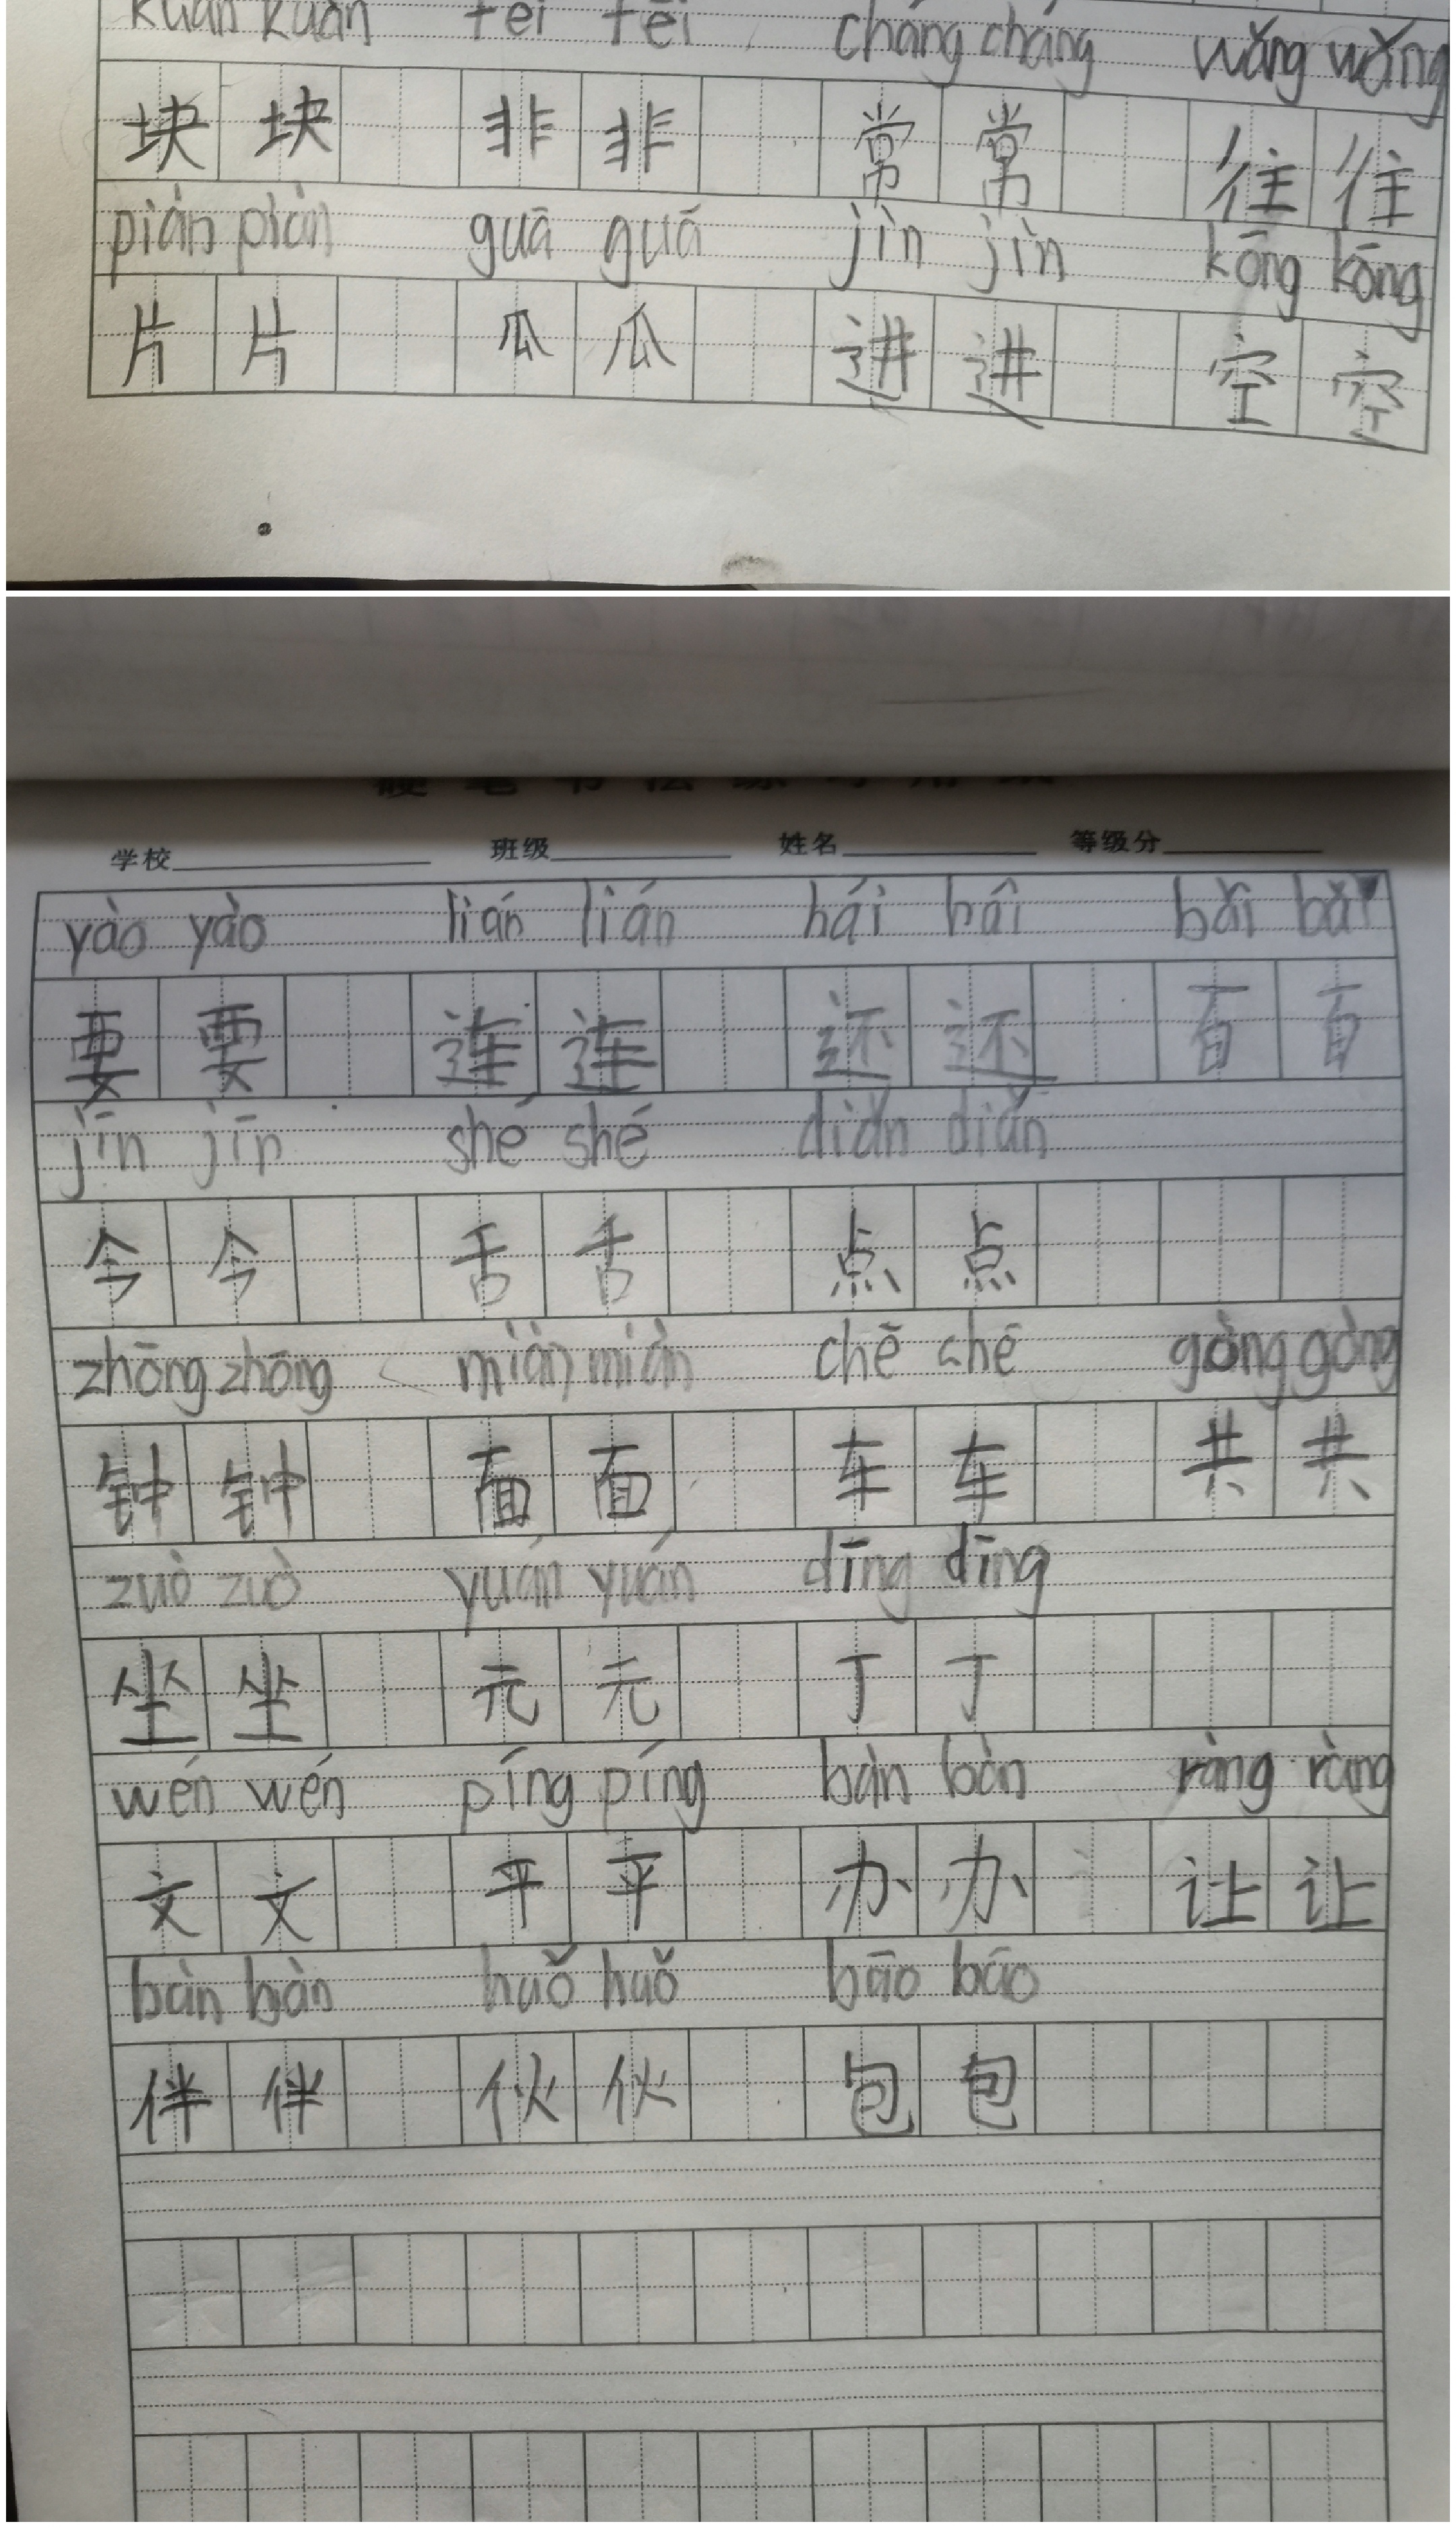 kuàn kuàn fēi fēi cháng cháng wǎng wǎng
块 块 非 非 常 常 往 往
piàn piàn guā guā jìn jìn kōng kōng
片 片 瓜 瓜 进 进 空 空
学校 班级 姓名 等级分
yào yào lián lián hái hái bǎi bǎi
要 要 连 连 还 还 百 百
jīn jīn shé shé diǎn diǎn
今 今 舌 舌 点 点
zhōng zhōng miàn miàn chē chē gòng gòng
钟 钟 面 面 车 车 共 共
zuò zuò yuán yuán dīng dīng
坐 坐 元 元 丁 丁
wén wén píng píng bàn bàn ràng ràng
文 文 平 平 办 办 让 让
bàn bàn huǒ huǒ bāo bāo
伴 伴 伙 伙 包 包